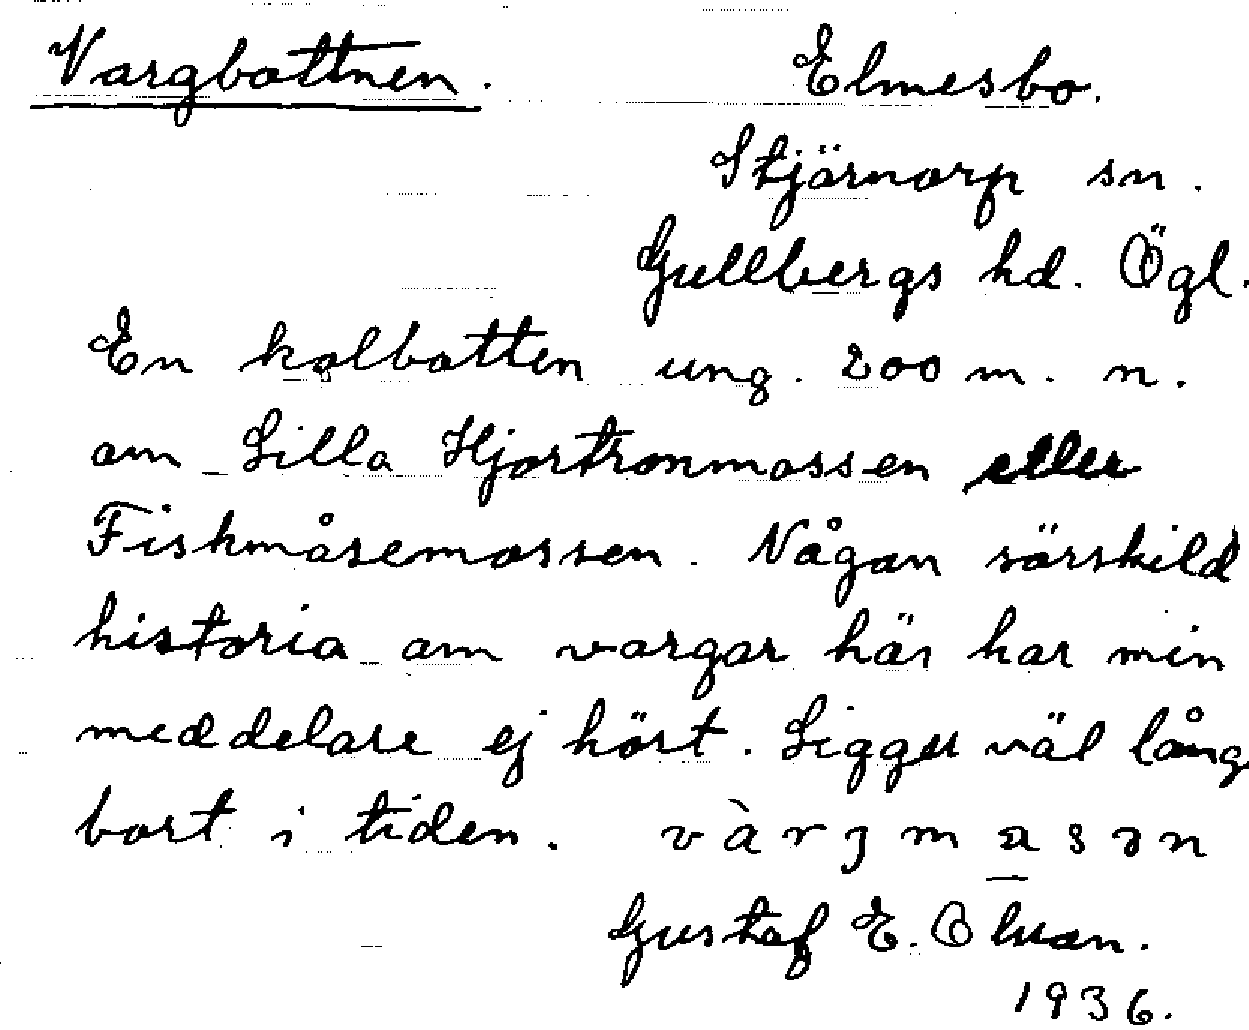 Vargbottnen. Elmesbo.
Stjärnorp sn.
Gullbergs hd. Ögl.
En kolbotten ung. 200 m. n.
om Lilla Hjortronmossen eller
Fiskmåsemossen. Någon särskild
historia om vargar här har min
meddelare ej hört. Ligger väl lång
bort i tiden. vàrgmasən
Gustaf E. Olsson.
1936.